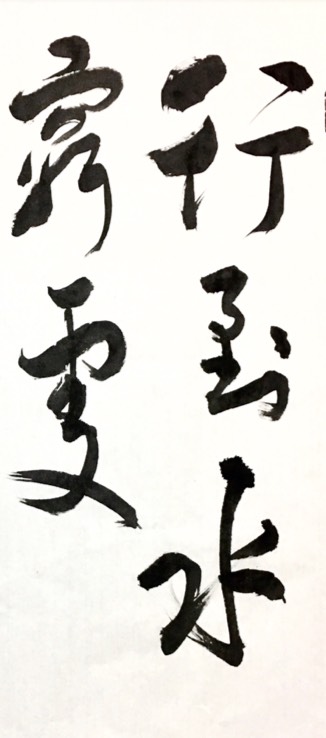 行到水
窮處